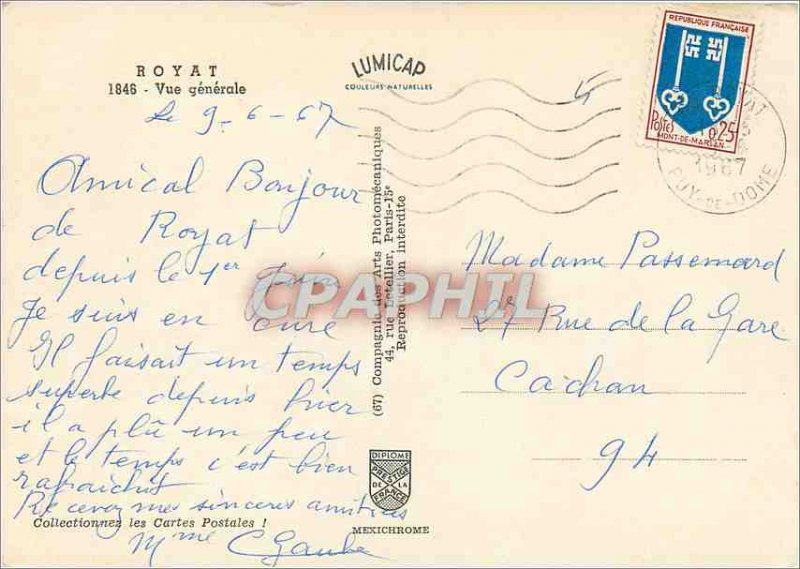 ROYAT
1846 - Vue générale
LUMICAP
COULEURS NATURELLES
REPUBLIQUE FRANÇAISE
POSTES 0,25
MONT-DE-MARSAN
1967
PUY-DE-DOME
Le 9-6-67
Amical Bonjour
de Royat
depuis le 1er juin
Je suis en cure
Il faisait un temps
superbe depuis hier
il a plû un peu
et le temps c'est bien
rafraichit
Recevez mes sinceres amitiés
Mme
Collectionnez les Cartes Postales !
(67) Compagnie des Arts Photomécaniques
44, rue Letellier, Paris-15e
Reproduction interdite
CPAPHIL
DIPLOME
PRESTIGE
DE LA
FRANCE
MEXICHROME
Madame Passemard
Rue de la Gare
Cachan
94